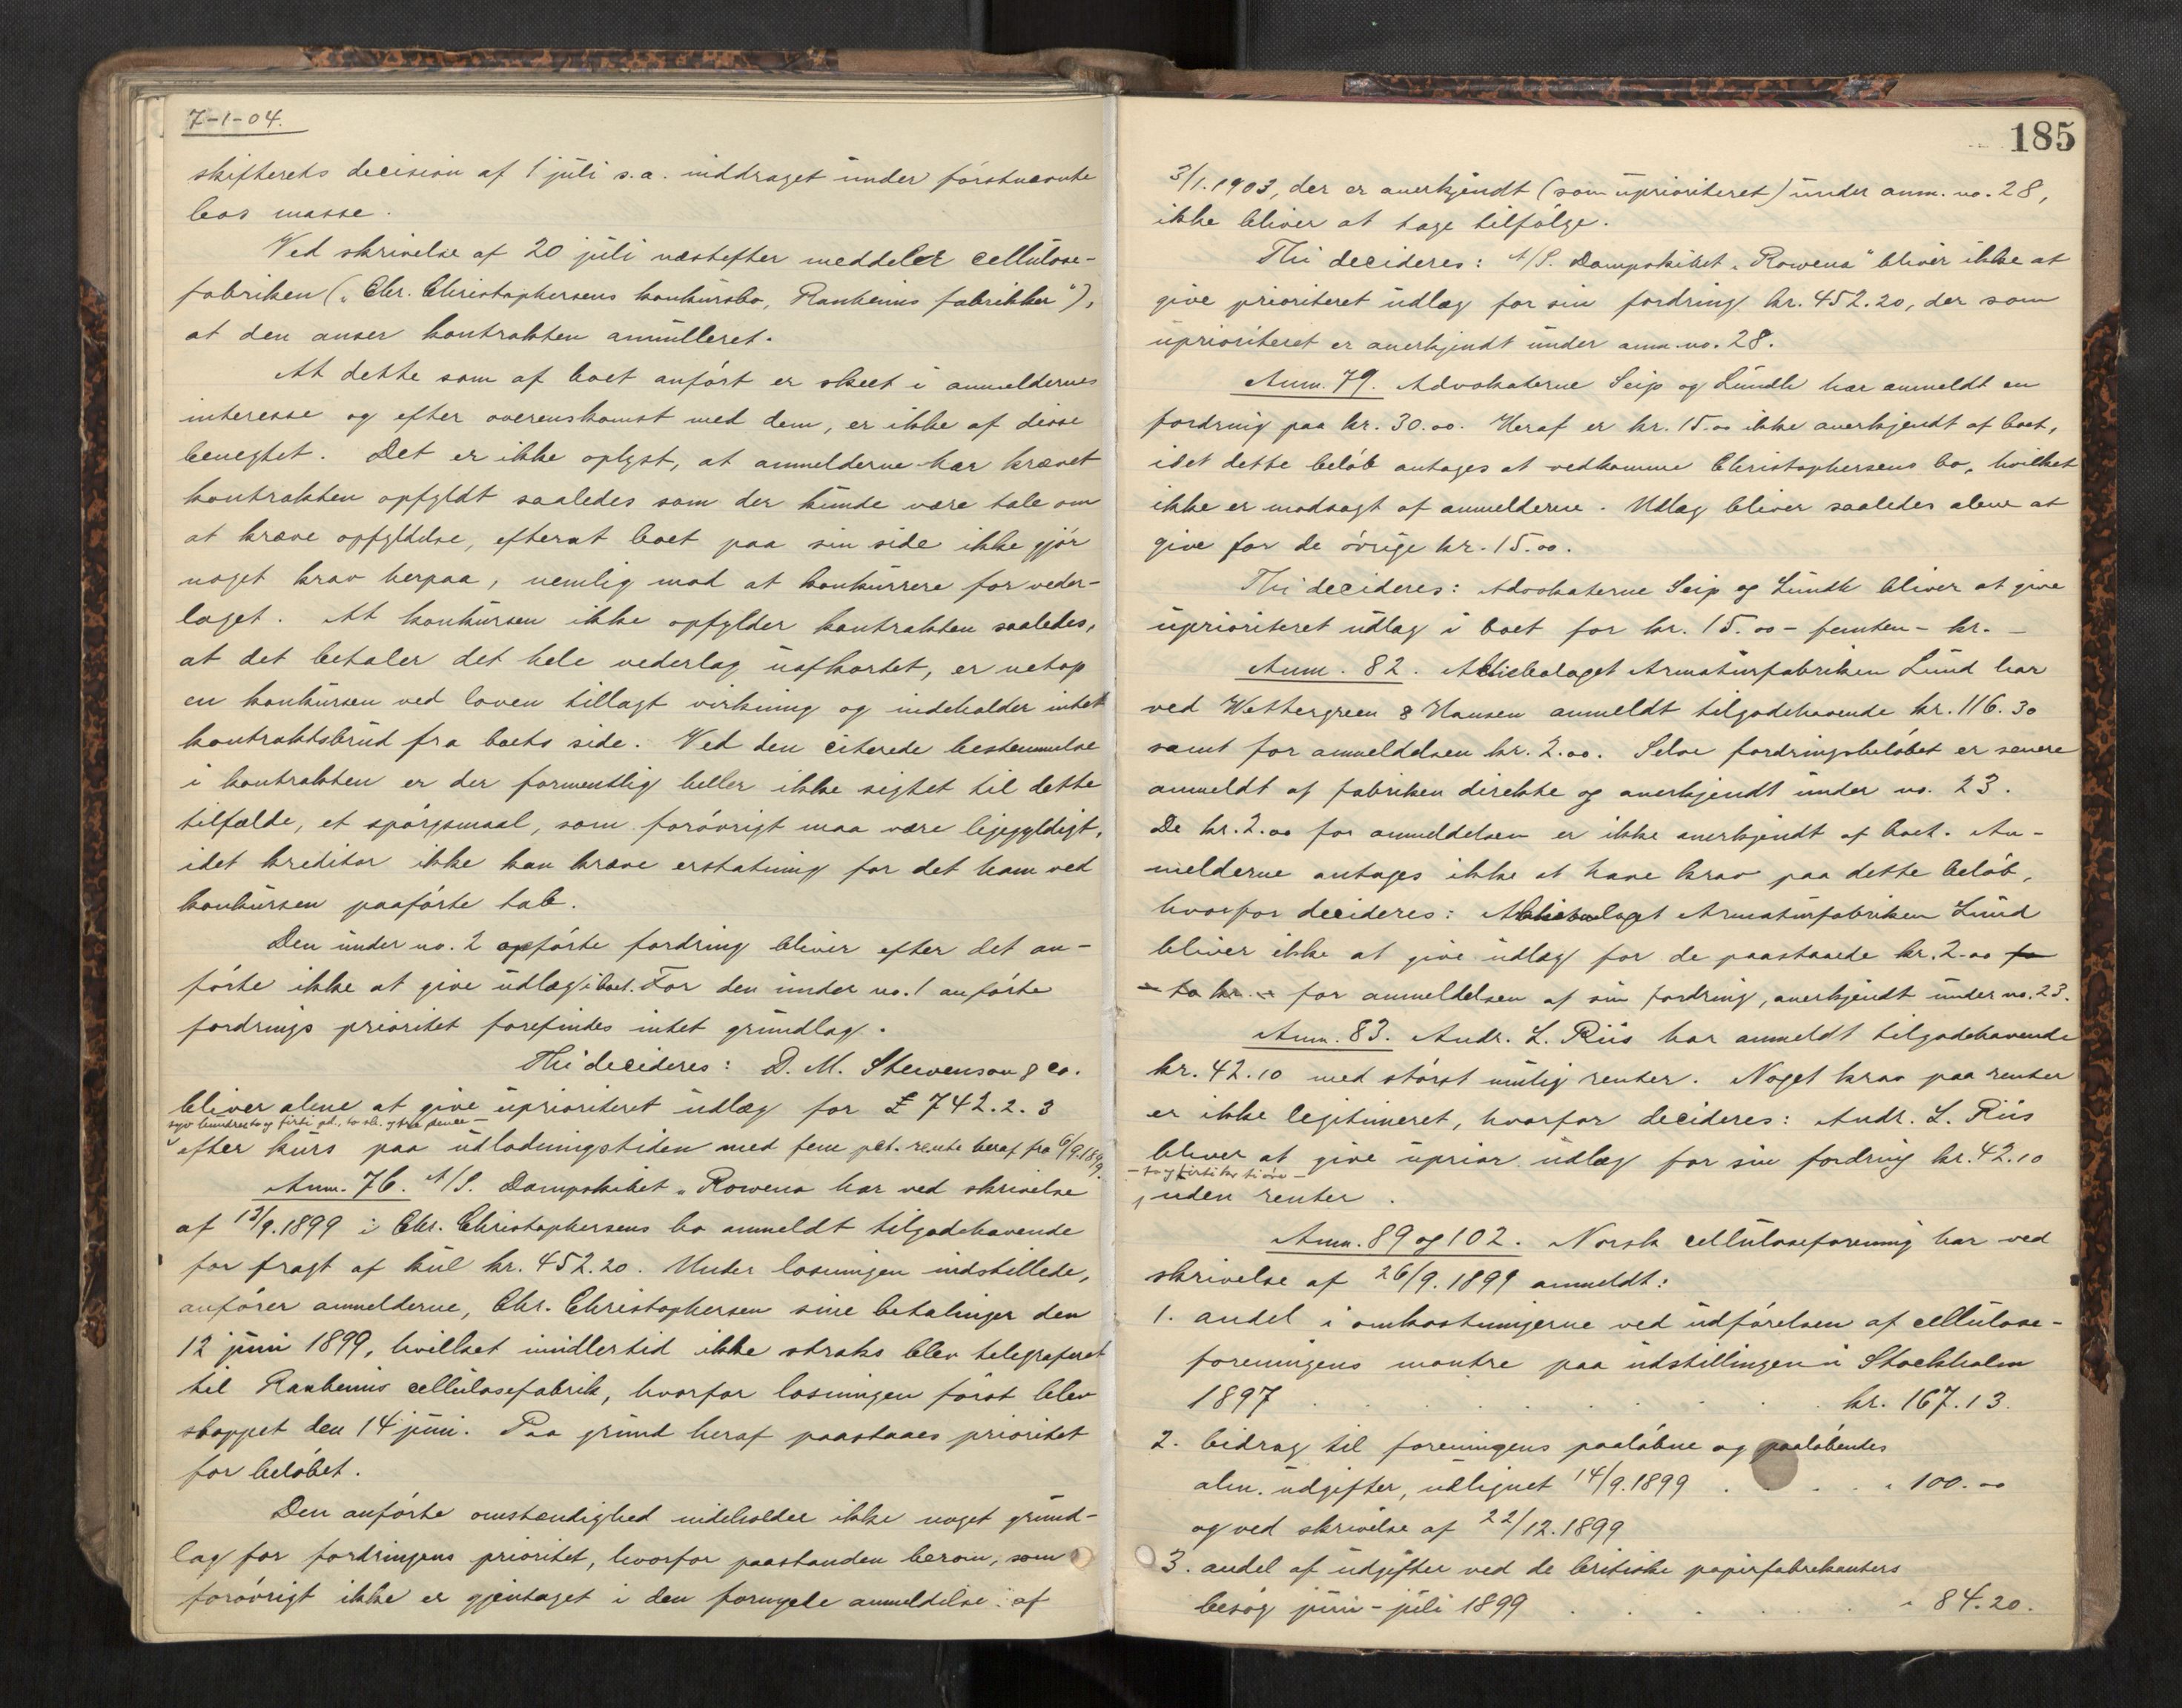 7-1-04.
skifterets decision af 1 juli s.a. inddraget under førstnævnte
bos masse.
Ved skrivelse af 20 juli næstefter meddeler cellulose-
fabriken („Chr. Christophersens konkursbo, Ranheims fabrikker"),
at den anser kontrakten annulleret.
At dette som af boet anført er skeet i anmeldernes
interesse og efter overenskomst med dem, er ikke af disse
benegtet. Det er ikke oplyst, at anmelderne har krævet
kontrakten opfyldt saaledes som der kunde være tale om
at kræve opfyldelse, efterat boet paa sin side ikke gjør
noget krav herpaa, nemlig mod at konkurrere for veder-
laget. At konkursen ikke opfylder kontrakten saaledes,
at det betaler det hele vederlag uafkortet, er netop
en konkursen ved loven tillagt virkning og indeholder intet
kontraktsbrud fra boets side. Ved den citerede bestemmelse
i kontrakten er der formentlig heller ikke sigtet til dette
tilfælde, et spørgsmaal, som forøvrigt maa være ligegyldigt,
idet kreditor ikke kan kræve erstatning for det ham ved
konkursen paaførte tab.
Den under no. 2 opførte fordring bliver efter det an-
førte ikke at give udlæg i boet. For den under no. 1 anførte
fordrings prioritet forefindes intet grundlag.
Thi decideres: D. M. Stevenson & co.
bliver alene at give uprioriteret udlæg for £ 742.2.3
syv hundrede to og firti pd., to sh. og tre pence —
efter kurs paa udlodningstiden med fem pct. rente heraf fra 6/9.1899.
Anm. 76. A/S. Dampskibet „Rowena har ved skrivelse
af 13/9.1899 i Chr. Christophersens bo anmeldt tilgodehavende
for fragt af kul kr. 452.20. Under losningen indstillede,
anfører anmelderne, Chr. Christophersen sine betalinger den
12 juni 1899, hvilket imidlertid ikke straks blev telegraferet
til Ranheims cellulosefabrik, hvorfor losningen først blev
stoppet den 14 juni. Paa grund heraf paastaaes prioritet
for beløbet.
Den anførte omstændighed indeholder ikke noget grund-
lag for fordringens prioritet, hvorfor paastanden herom, som
forøvrigt ikke er gjentaget i den fornyede anmeldelse af
185
3/1.1903, der er anerkjendt (som uprioriteret) under anm. no. 28,
ikke bliver at tage tilfølge.
Thi decideres: A/S. Dampskibet „Rowena" bliver ikke at
give prioriteret udlæg for sin fordring kr. 452.20, der som
uprioriteret er anerkjendt under anm. no. 28.
Anm. 79. Advokaterne Seip og Lundh har anmeldt en
fordring paa kr. 30.00. Heraf er kr. 15.00 ikke anerkjendt af boet,
idet dette beløb antages at vedkomme Christophersens bo, hvilket
ikke er modsagt af anmelderne. Udlæg bliver saaledes alene at
give for de øvrige kr. 15.00.
Thi decideres: Advokaterne Seip og Lundh bliver at give
uprioriteret udlæg i boet for kr. 15.00 – femten – kr. –
Anm. 82. Aktiebolaget Armaturfabriken Lund har
ved Wettergreen & Hansen anmeldt tilgodehavende kr. 116.30
samt for anmeldelsen kr. 2.00. Selve fordringsbeløbet er senere
anmeldt af fabriken direkte og anerkjendt under no. 23.
De kr. 2.00 for anmeldelsen er ikke anerkjendt af boet. An-
melderne antages ikke at have krav paa dette beløb,
hvorfor decideres: Aktiebolaget Armaturfabriken Lund
bliver ikke at give udlæg for de paastaaede kr. 2.00 fo
– to kr. – for anmeldelsen af sin fordring, anerkjendt under no. 23.
Anm. 83. Andr. L. Riis har anmeldt tilgodehavende
kr. 42.10 med størst mulig renter. Noget krav paa renter
er ikke legitimeret, hvorfor decideres: Andr. L. Riis
bliver at give uprior. udlæg for sin fordring kr. 42.10
– to og firti kr. ti øre –
, uden renter.
Anm. 89 og 102. Norsk celluloseforening har ved
skrivelse af 26/9.1899 anmeldt:
1. andel i omkostningerne ved udførelsen af cellulose-
foreningens montre paa udstillingen i Stockholm
1897 . . . . . . . . kr. 167.13.
2. bidrag til foreningens paaløbne og paaløbendes
alm. udgifter, udlignet 14/9.1899 . . . . „ 100.00
og ved skrivelse af 22/12.1899
3. andel af udgifter ved de britiske papirfabrikanters
besøg juni – juli 1899 . . . . . „ 84.20.